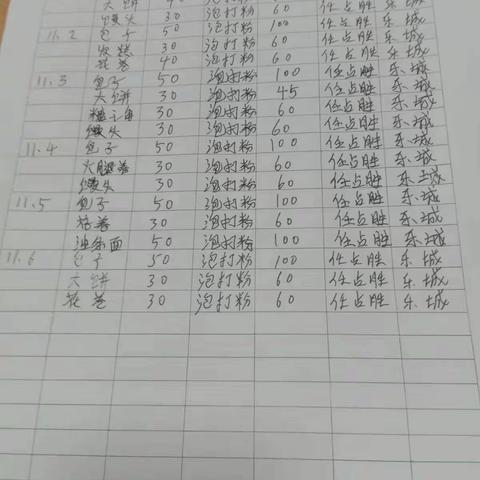 大饼 40 泡打粉 60 任占胜 乐城
馒头 30 泡打粉 60 任占胜 乐城
11.2 包子 50 泡打粉 100 任占胜 乐城
发糕 30 泡打粉 60 任占胜 乐城
花卷 40 泡打粉 60 任占胜 乐城
11.3 包子 50 泡打粉 100 任占胜 乐城
大饼 30 泡打粉 45 任占胜 乐城
糖三角 30 泡打粉 60 任占胜 乐城
馒头 30 泡打粉 60 任占胜 乐城
11.4 包子 50 泡打粉 100 任占胜 乐城
火腿卷 30 泡打粉 60 任占胜 乐城
馒头 30 泡打粉 60 任占胜 乐城
11.5 包子 50 泡打粉 100 任占胜 乐城
花卷 30 泡打粉 60 任占胜 乐城
油条面 50 泡打粉 100 任占胜 乐城
11.6 包子 50 泡打粉 100 任占胜 乐城
大饼 30 泡打粉 60 任占胜 乐城
花卷 30 泡打粉 60 任占胜 乐城